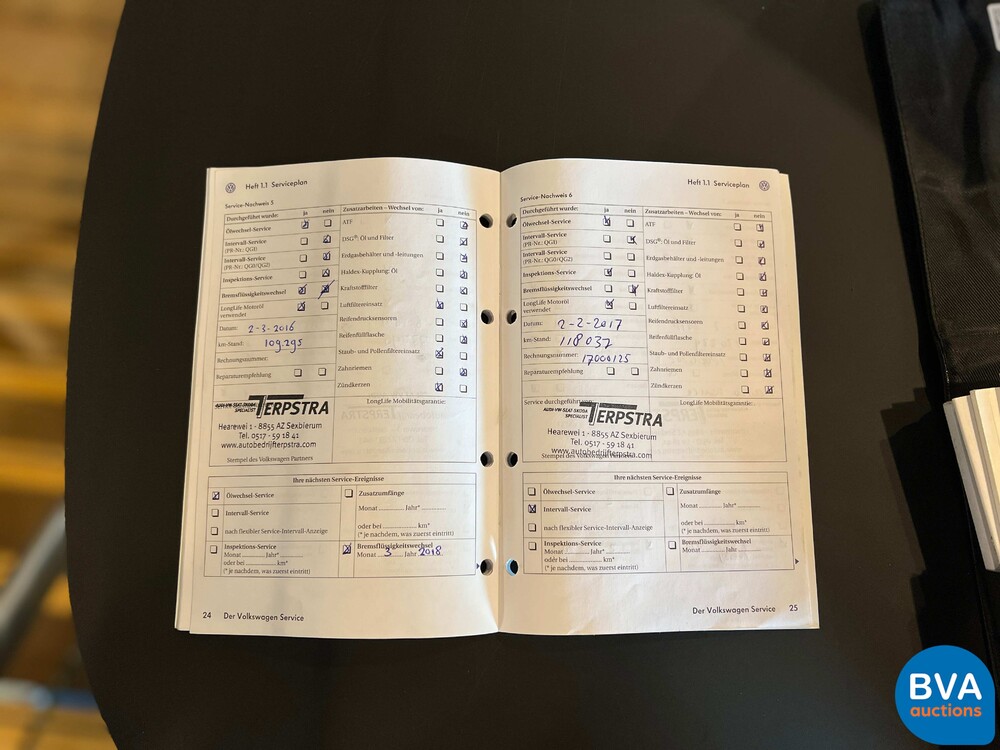 Heft 1.1 Serviceplan
Service-Nachweis 5
Durchgeführt wurde: ja nein
Ölwechsel-Service
Intervall-Service
(PR-Nr.: QG1)
Intervall-Service
(PR-Nr.: QG0/QG2)
Inspektions-Service
Bremsflüssigkeitswechsel
LongLife Motoröl
verwendet
Datum: 2-3-2016
km-Stand: 109.295
Rechnungsnummer:
Reparaturempfehlung
Zusatzarbeiten – Wechsel von: ja nein
ATF
DSG®: Öl und Filter
Erdgasbehälter und -leitungen
Haldex-Kupplung: Öl
Kraftstofffilter
Luftfiltereinsatz
Reifendrucksensoren
Reifenfüllflasche
Staub- und Pollenfiltereinsatz
Zahnriemen
Zündkerzen
AUDI-VW-SEAT-SKODA
SPECIALIST
TERPSTRA
Hearewei 1 - 8855 AZ Sexbierum
Tel. 0517 - 59 18 41
www.autobedrijfterpstra.com
Stempel des Volkswagen Partners
LongLife Mobilitätsgarantie:
Ihre nächsten Service-Ereignisse
Ölwechsel-Service
Intervall-Service
nach flexibler Service-Intervall-Anzeige
Inspektions-Service
Monat ........ Jahr*
oder bei ........ km*
(* je nachdem, was zuerst eintritt)
Zusatzumfänge
Monat ........ Jahr*
oder bei ........ km*
(* je nachdem, was zuerst eintritt)
Bremsflüssigkeitswechsel
Monat 3 Jahr 2018
24 Der Volkswagen Service
Heft 1.1 Serviceplan
Service-Nachweis 6
Durchgeführt wurde: ja nein
Ölwechsel-Service
Intervall-Service
(PR-Nr.: QG1)
Intervall-Service
(PR-Nr.: QG0/QG2)
Inspektions-Service
Bremsflüssigkeitswechsel
LongLife Motoröl
verwendet
Datum: 2-2-2017
km-Stand: 118037
Rechnungsnummer: 17000125
Reparaturempfehlung
Zusatzarbeiten – Wechsel von: ja nein
ATF
DSG®: Öl und Filter
Erdgasbehälter und -leitungen
Haldex-Kupplung: Öl
Kraftstofffilter
Luftfiltereinsatz
Reifendrucksensoren
Reifenfüllflasche
Staub- und Pollenfiltereinsatz
Zahnriemen
Zündkerzen
Service durchgeführt von:
AUDI-VW-SEAT-SKODA
SPECIALIST
TERPSTRA
Hearewei 1 - 8855 AZ Sexbierum
Tel. 0517 - 59 18 41
www.autobedrijfterpstra.com
Stempel des Volkswagen Partners
LongLife Mobilitätsgarantie:
Ihre nächsten Service-Ereignisse
Ölwechsel-Service
Intervall-Service
nach flexibler Service-Intervall-Anzeige
Inspektions-Service
Monat ........ Jahr*
oder bei ........ km*
(* je nachdem, was zuerst eintritt)
Zusatzumfänge
Monat ........ Jahr*
oder bei ........ km*
(* je nachdem, was zuerst eintritt)
Bremsflüssigkeitswechsel
Monat ........ Jahr ........
Der Volkswagen Service 25
BVA
auctions